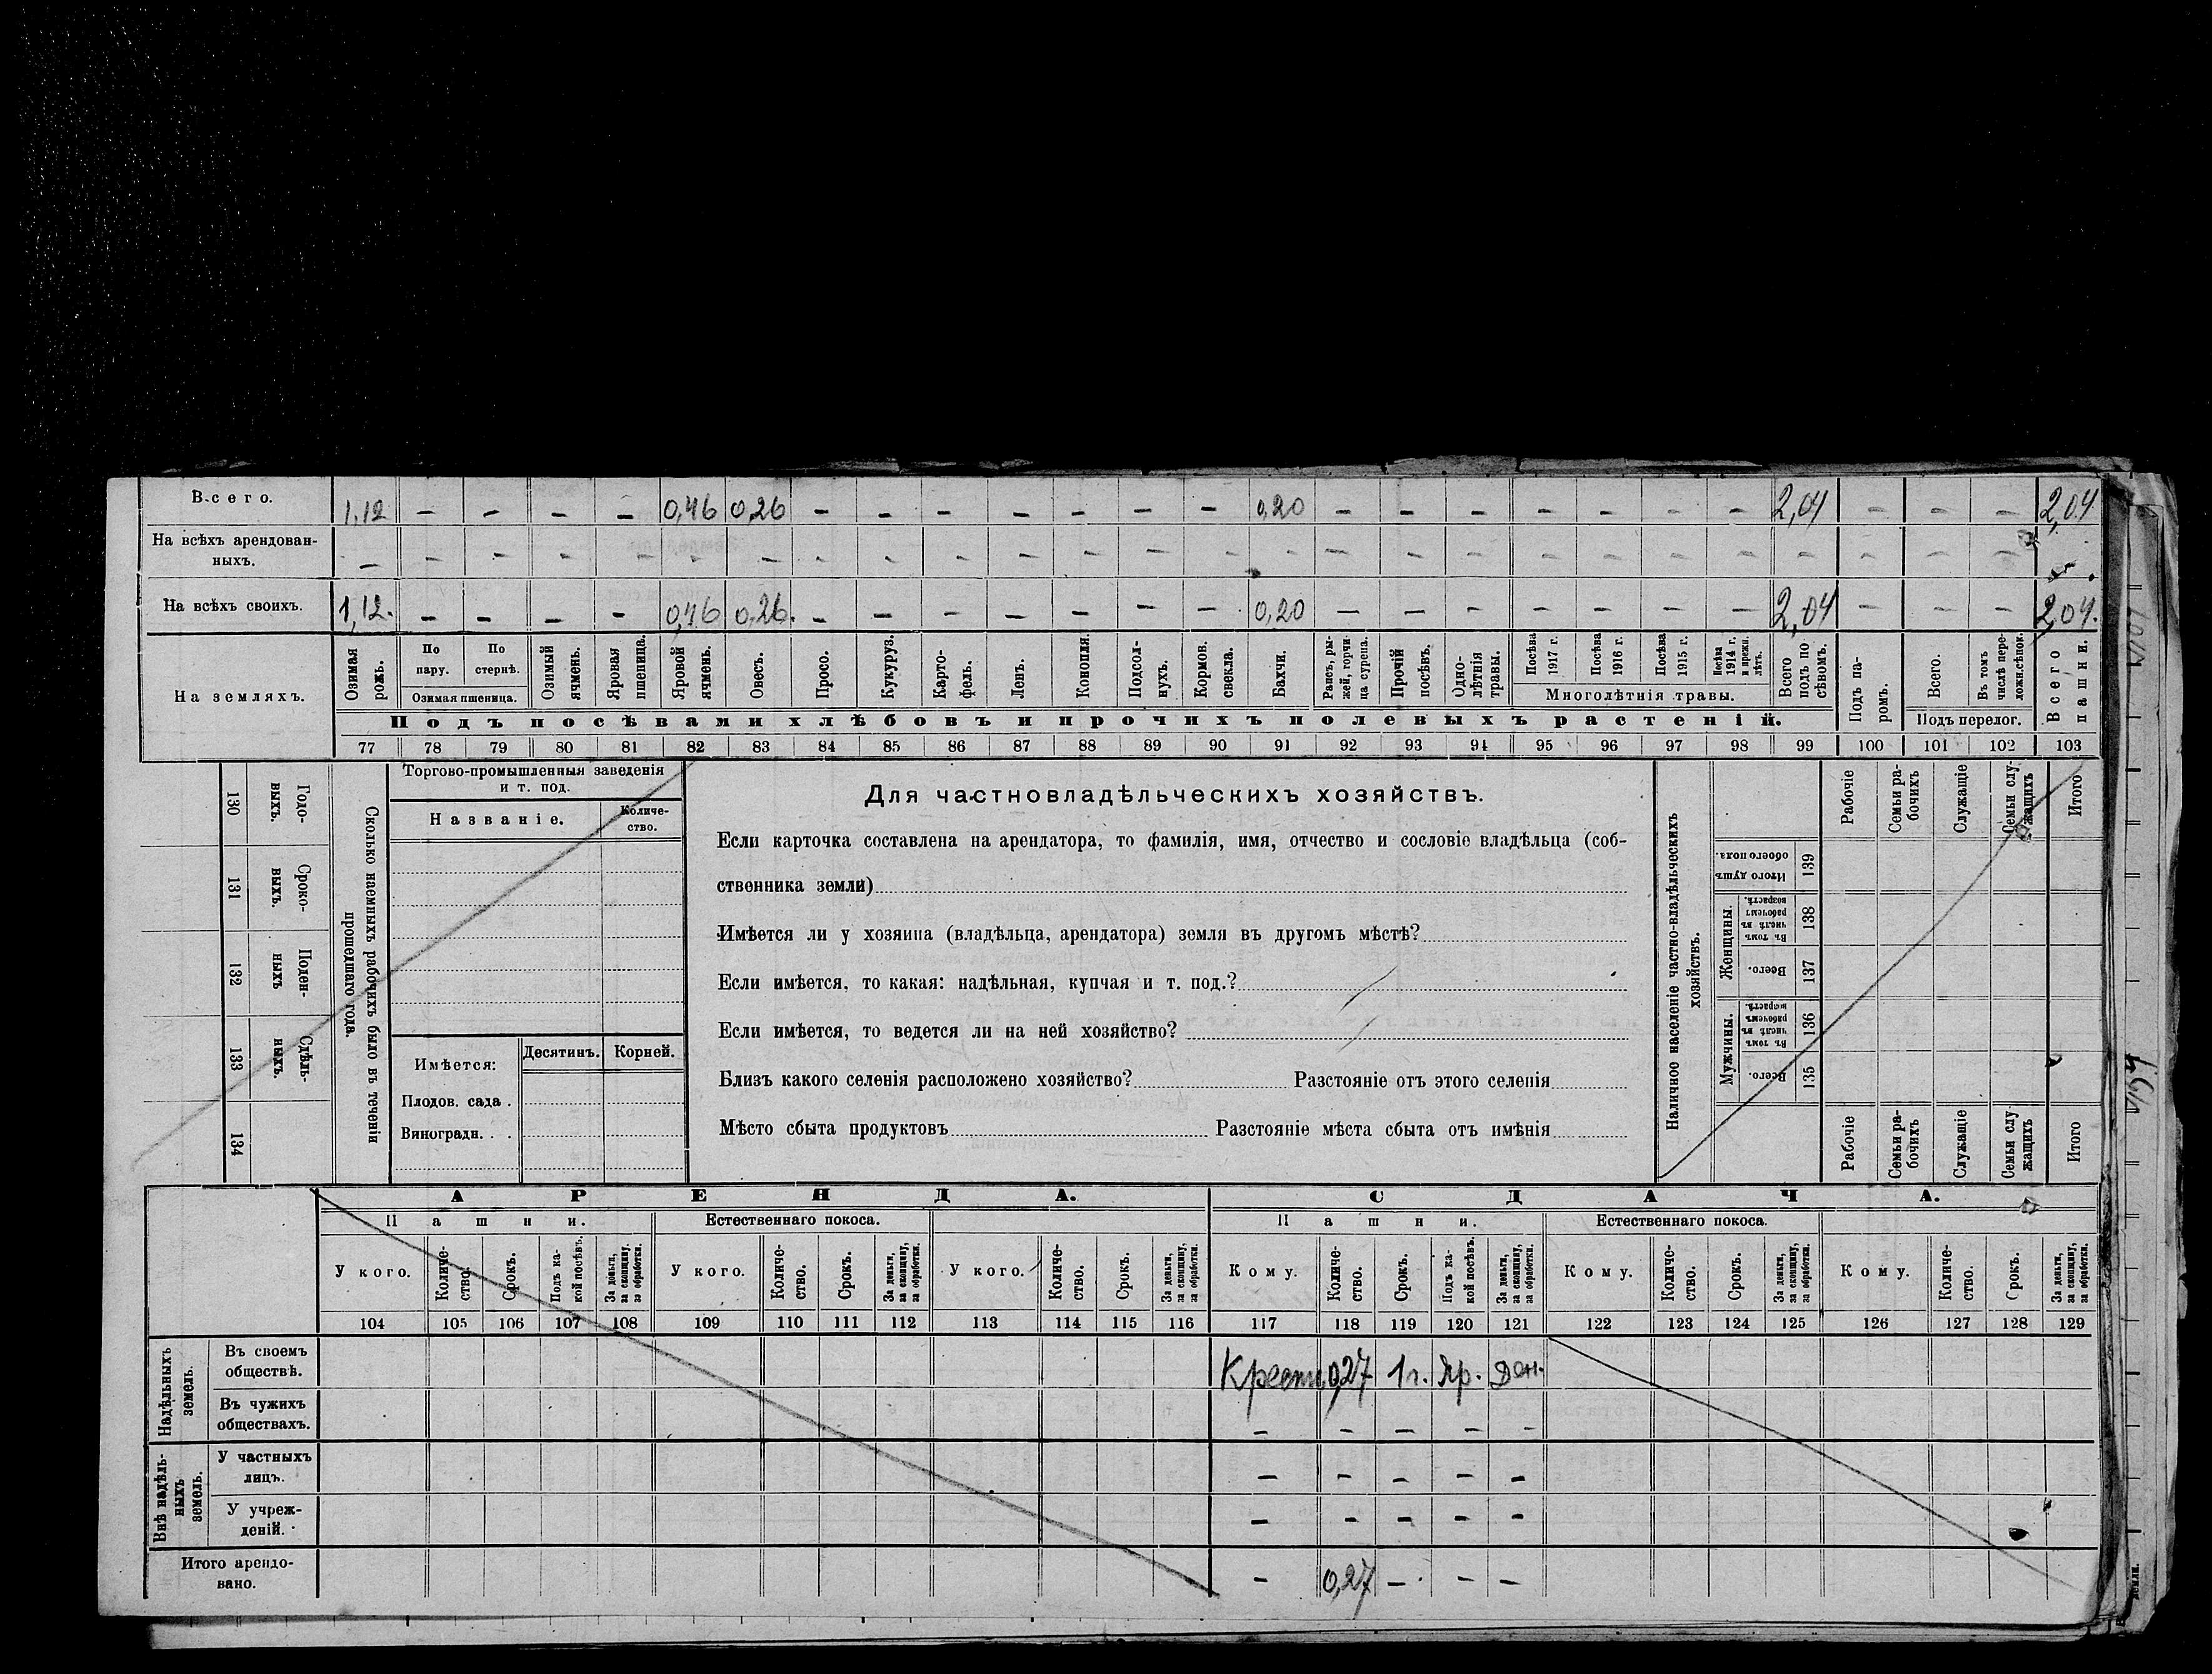 Всего. 1,12 – – – – 0,46 0,26 – – – – – – – 0,20 – – – – – – – 2,04 – – – 2,04
На всѣхъ арендован-
ныхъ. – – – – – – – – – – – – – – – – – – – – – – – – – –
На всѣхъ своихъ. 1,12. – – – – 0,46 0,26. – – – – – – – 0,20 – – – – – – – 2,04 – – – 2,04.
На земляхъ.
Озимая рожь.
По пару.
По стернѣ.
Озимая пшеница.
Озимый ячмень.
Яровая пшеница.
Яровой ячмень.
Овесъ.
Просо.
Кукуруз.
Карто-
фель.
Ленъ.
Конопля.
Подсол-
нухъ.
Кормов.
свекла.
Бахчи.
Рапсъ, ры-
жей, горчи-
ца сурепа.
Прочій
посѣвъ.
Одно-
лѣтнія
травы.
Посѣва
1917 г.
Посѣва
1916 г.
Посѣва
1915 г.
Посѣва
1914 г.
и прежн.
лѣтъ.
Многолѣтнія травы.
Всего
подъ по
сѣвомъ.
Подъ па-
ромъ.
Всего.
Въ томъ
числѣ пере-
ложн.сѣнок.
Подъ перелог.
Всего
пашни.
Подъ посѣвами хлѣбовъ и прочихъ полевыхъ растеній.
77 78 79 80 81 82 83 84 85 86 87 88 89 90 91 92 93 94 95 96 97 98 99 100 101 102 103
130 Годо-
выхъ.
131 Сроко-
выхъ.
132 Поден-
ныхъ
133 Сдѣль-
ныхъ.
134
Сколько наемныхъ рабочихъ было въ теченіи
прошедшаго года.
Торгово-промышленныя заведенія
и т. под.
Названіе.
Количе-
ство.
Имѣется:
Десятинъ.
Корней.
Плодов. сада .
Виноградн. . .
Для частновладѣльческихъ хозяйствъ.
Если карточка составлена на арендатора, то фамилія, имя, отчество и сословіе владѣльца (соб-
ственника земли)
Имѣется ли у хозяина (владѣльца, арендатора) земля въ другомъ мѣстѣ?
Если имѣется, то какая: надѣльная, купчая и т. под.?
Если имѣется, то ведется ли на ней хозяйство?
Близъ какого селенія расположено хозяйство? Разстояніе отъ этого селенія
Мѣсто сбыта продуктовъ Разстояніе мѣста сбыта отъ имѣнія
Наличное населеніе частно-владѣльческихъ
хозяйствъ.
Рабочіе
Семьи ра-
бочихъ
Служащіе
Семьи слу-
жащихъ
Итого
Итого душъ
обоего пола. 139
Женщины.
Въ томъ
числѣ въ
рабочемъ
возрастѣ. 138
Всего. 137
Мужчины.
Въ томъ
числѣ въ
рабочемъ
возрастѣ. 136
Всего. 135
Рабочіе
Семьи ра-
бочихъ
Служащіе
Семьи слу
жащихъ
Итого
АРЕНДА. СДАЧА.
Пашни. Естественнаго покоса. Пашни. Естественнаго покоса.
У кого. Количе-
ство. Срокъ. Подъ ка-
кой посѣвъ. За деньги,
за скопщину,
за обработки.
У кого. Количе-
ство. Срокъ. За деньги,
за скопщину,
за обработки.
У кого. Количе-
ство. Срокъ. За деньги,
за скопщину,
за обработки.
Кому. Количе-
ство. Срокъ. Подъ ка-
кой посѣвъ. За деньги,
за скопщину,
за обработки.
Кому. Количе-
ство. Срокъ. За деньги,
за скопщину,
за обработки.
Кому. Количе-
ство. Срокъ. За деньги,
за скопщину,
за обработки.
104 105 106 107 108 109 110 111 112 113 114 115 116 117 118 119 120 121 122 123 124 125 126 127 128 129
Надѣльныхъ
земель.
Въ своемъ
обществѣ. Крест. 0,27 1 г. Яр. Ден.
Въ чужихъ
обществахъ. – – – – –
Внѣ надѣль-
ныхъ
земель.
У частныхъ
лицъ. – – – – –
У учреж-
деній. – – – – –
Итого арендо-
вано. – 0,27 – – –